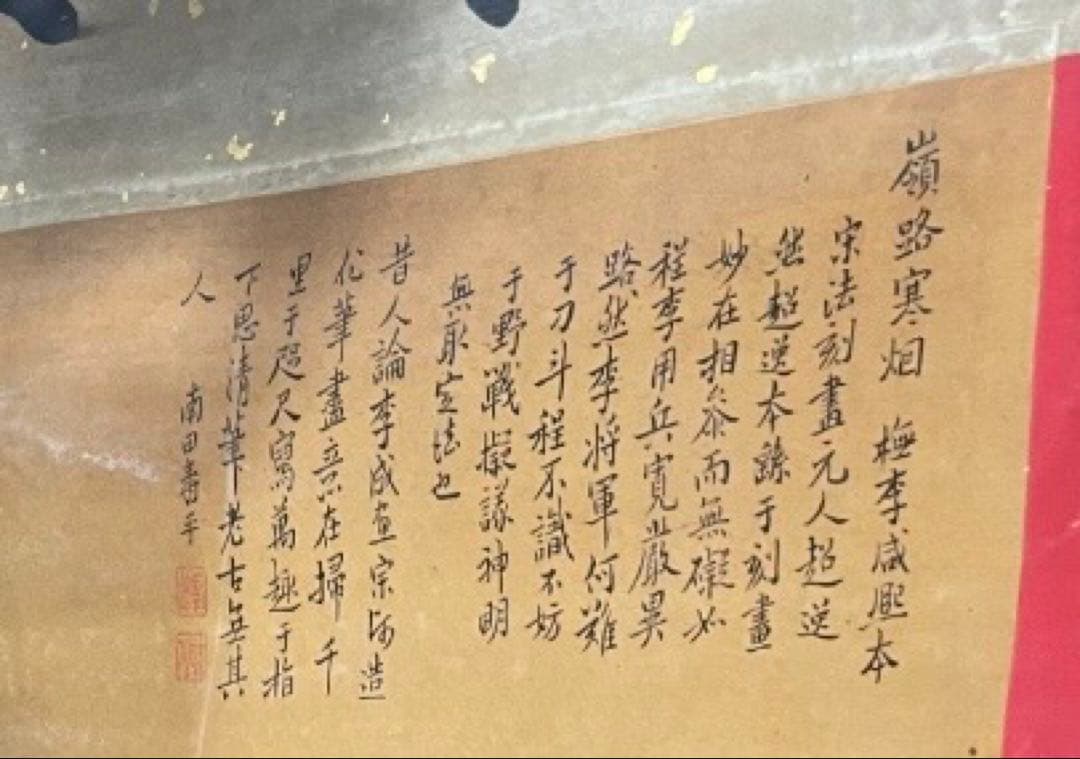 嶺路寒烟 橅李咸熙本
宋法刻畫元人超逸
然超逸本疎于刻畫
妙在相參而無礙如
程李用兵寬嚴異
路然李將軍何難
于刀斗程不識不妨
于野戰擬議神明
無取定法也
昔人論李成畫宗師造
化筆盡意在掃千
里于咫尺寫萬趣于指
下思清筆老古無其
人
南田壽平